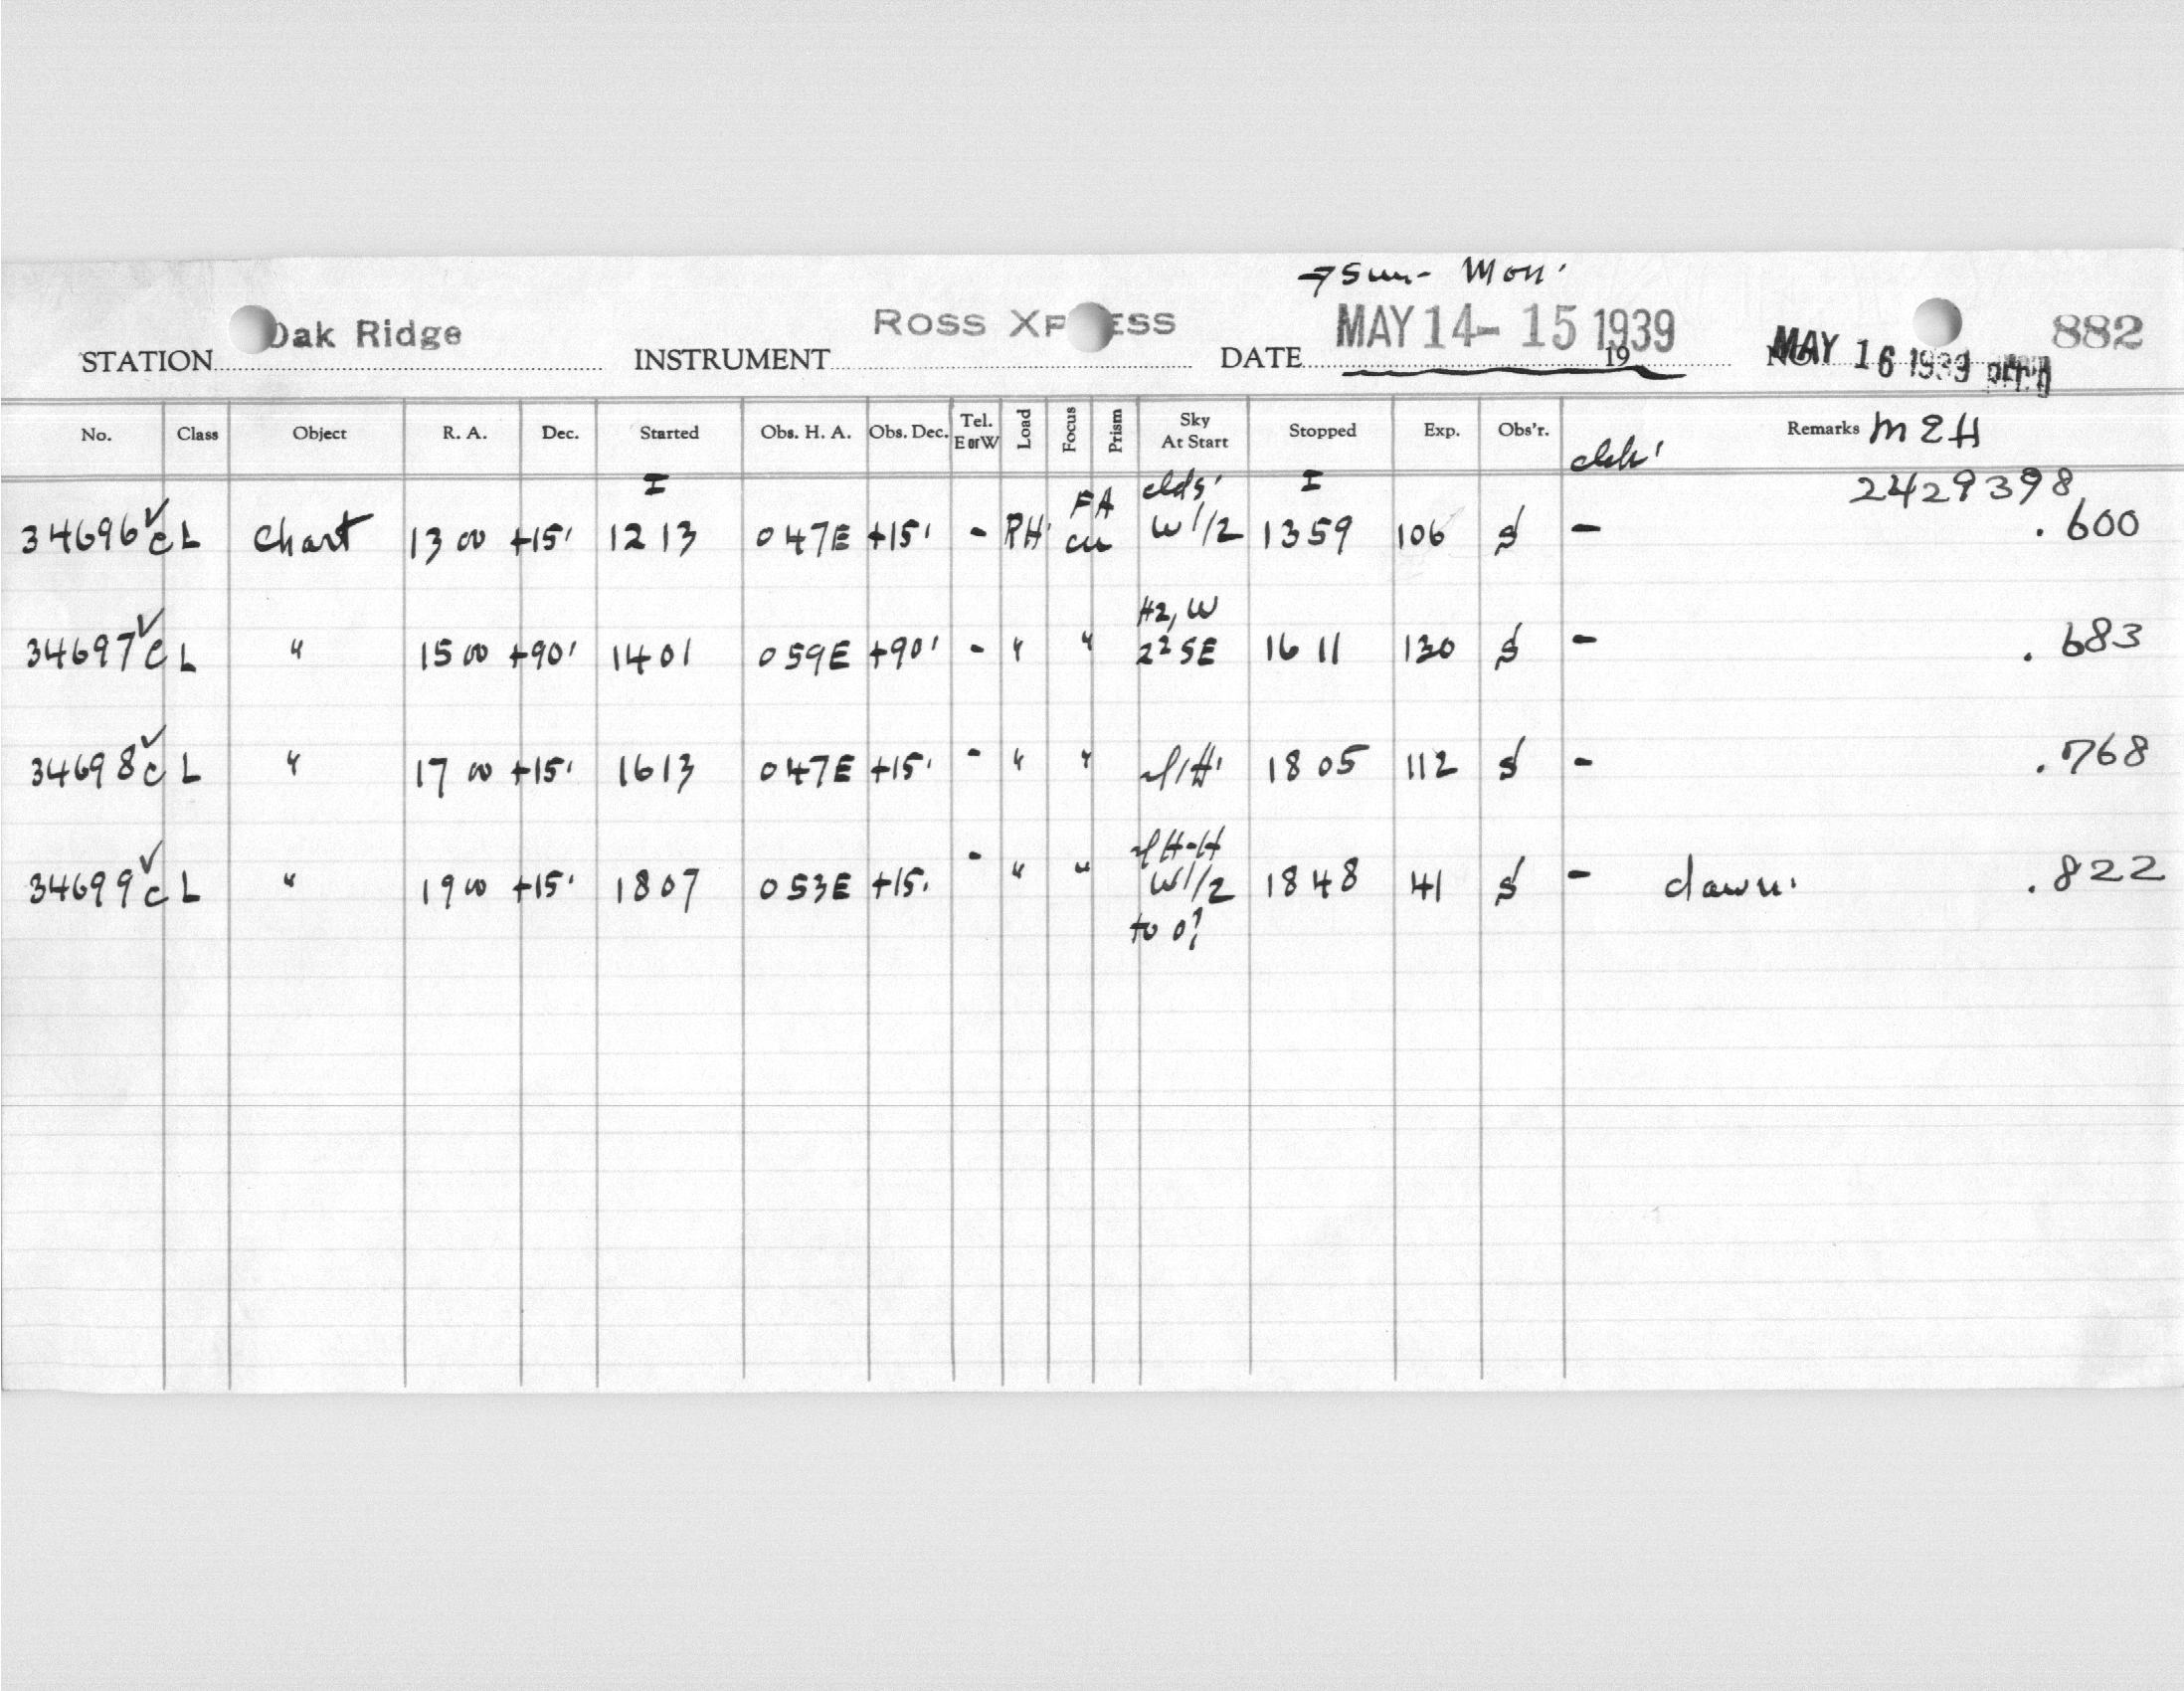 → Sun - Mon.
STATION Oak Ridge INSTRUMENT ROSS XP ESS DATE MAY 14 - 15 1939 19 NO. MAY 16 1939 882
No. Class Object R. A. Dec. Started Obs. H. A. Obs. Dec. Tel. E or W Load Focus Prism Sky At Start Stopped Exp. Obs'r. Remarks MEH
I clds. I 2429398
34696 ✓ c L Chart 13 00 +15° 12 13 0 47E +15° - RH FA cu W 1/2 13 59 106 S - .600
H2, W
34697 ✓ c L " 15 00 +90° 14 01 0 59E +90° - " " 2² SE 16 11 130 S - .683
34698 ✓ c L " 17 00 +15° 16 13 0 47E +15° - " " 18 05 112 S - .768
34699 ✓ c L " 19 00 +15° 18 07 0 53E +15° - " " W 1/2 18 48 41 S - dawn. .822
to 0?